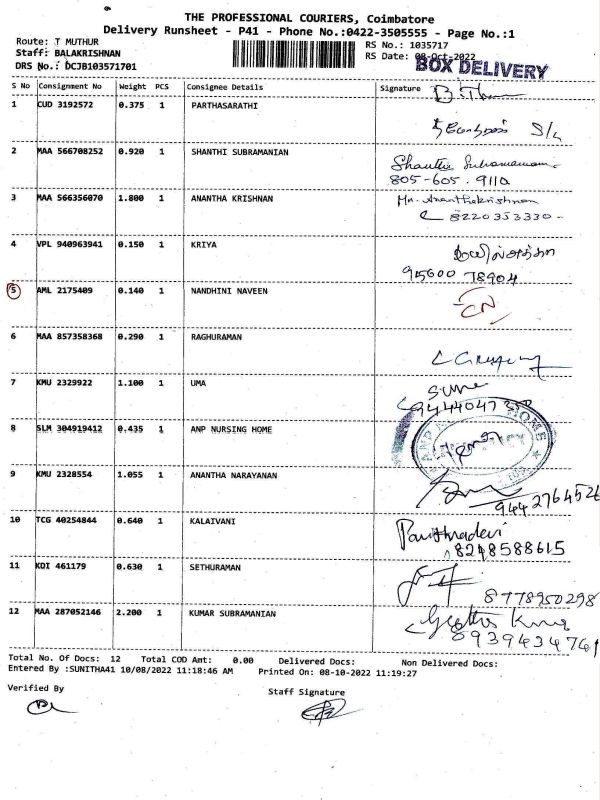 THE PROFESSIONAL COURIERS, Coimbatore
Delivery Runsheet - P41 - Phone No.:0422-3505555 - Page No.:1
Route: T MUTHUR RS No.: 1035717
Staff: BALAKRISHNAN RS Date: 08-Oct-2022
DRS No.: DCJB103571701 BOX DELIVERY
S No Consignment No Weight PCS Consignee Details Signature
1 CUD 3192572 0.375 1 PARTHASARATHI
S/L
2 MAA 566708252 0.920 1 SHANTHI SUBRAMANIAN Shanthi Subramaniam
805-605-9110
3 MAA 566356070 1.800 1 ANANTHA KRISHNAN Mr. Ananthakrishnan
8220353330-
4 VPL 940963941 0.150 1 KRIYA
95600 78904
5 AML 2175409 0.140 1 NANDHINI NAVEEN CN
6 MAA 857358368 0.290 1 RAGHURAMAN
7 KMU 2329922 1.100 1 UMA
8 SLM 304919412 0.435 1 ANP NURSING HOME
9 KMU 2328554 1.055 1 ANANTHA NARAYANAN
9442764526
10 TCG 40254844 0.640 1 KALAIVANI
8248588615
11 KDI 461179 0.630 1 SETHURAMAN
8778950298
12 MAA 287052146 2.200 1 KUMAR SUBRAMANIAN
8939434761
Total No. Of Docs: 12 Total COD Amt: 0.00 Delivered Docs: Non Delivered Docs:
Entered By :SUNITHA41 10/08/2022 11:18:46 AM Printed On: 08-10-2022 11:19:27
Verified By Staff Signature